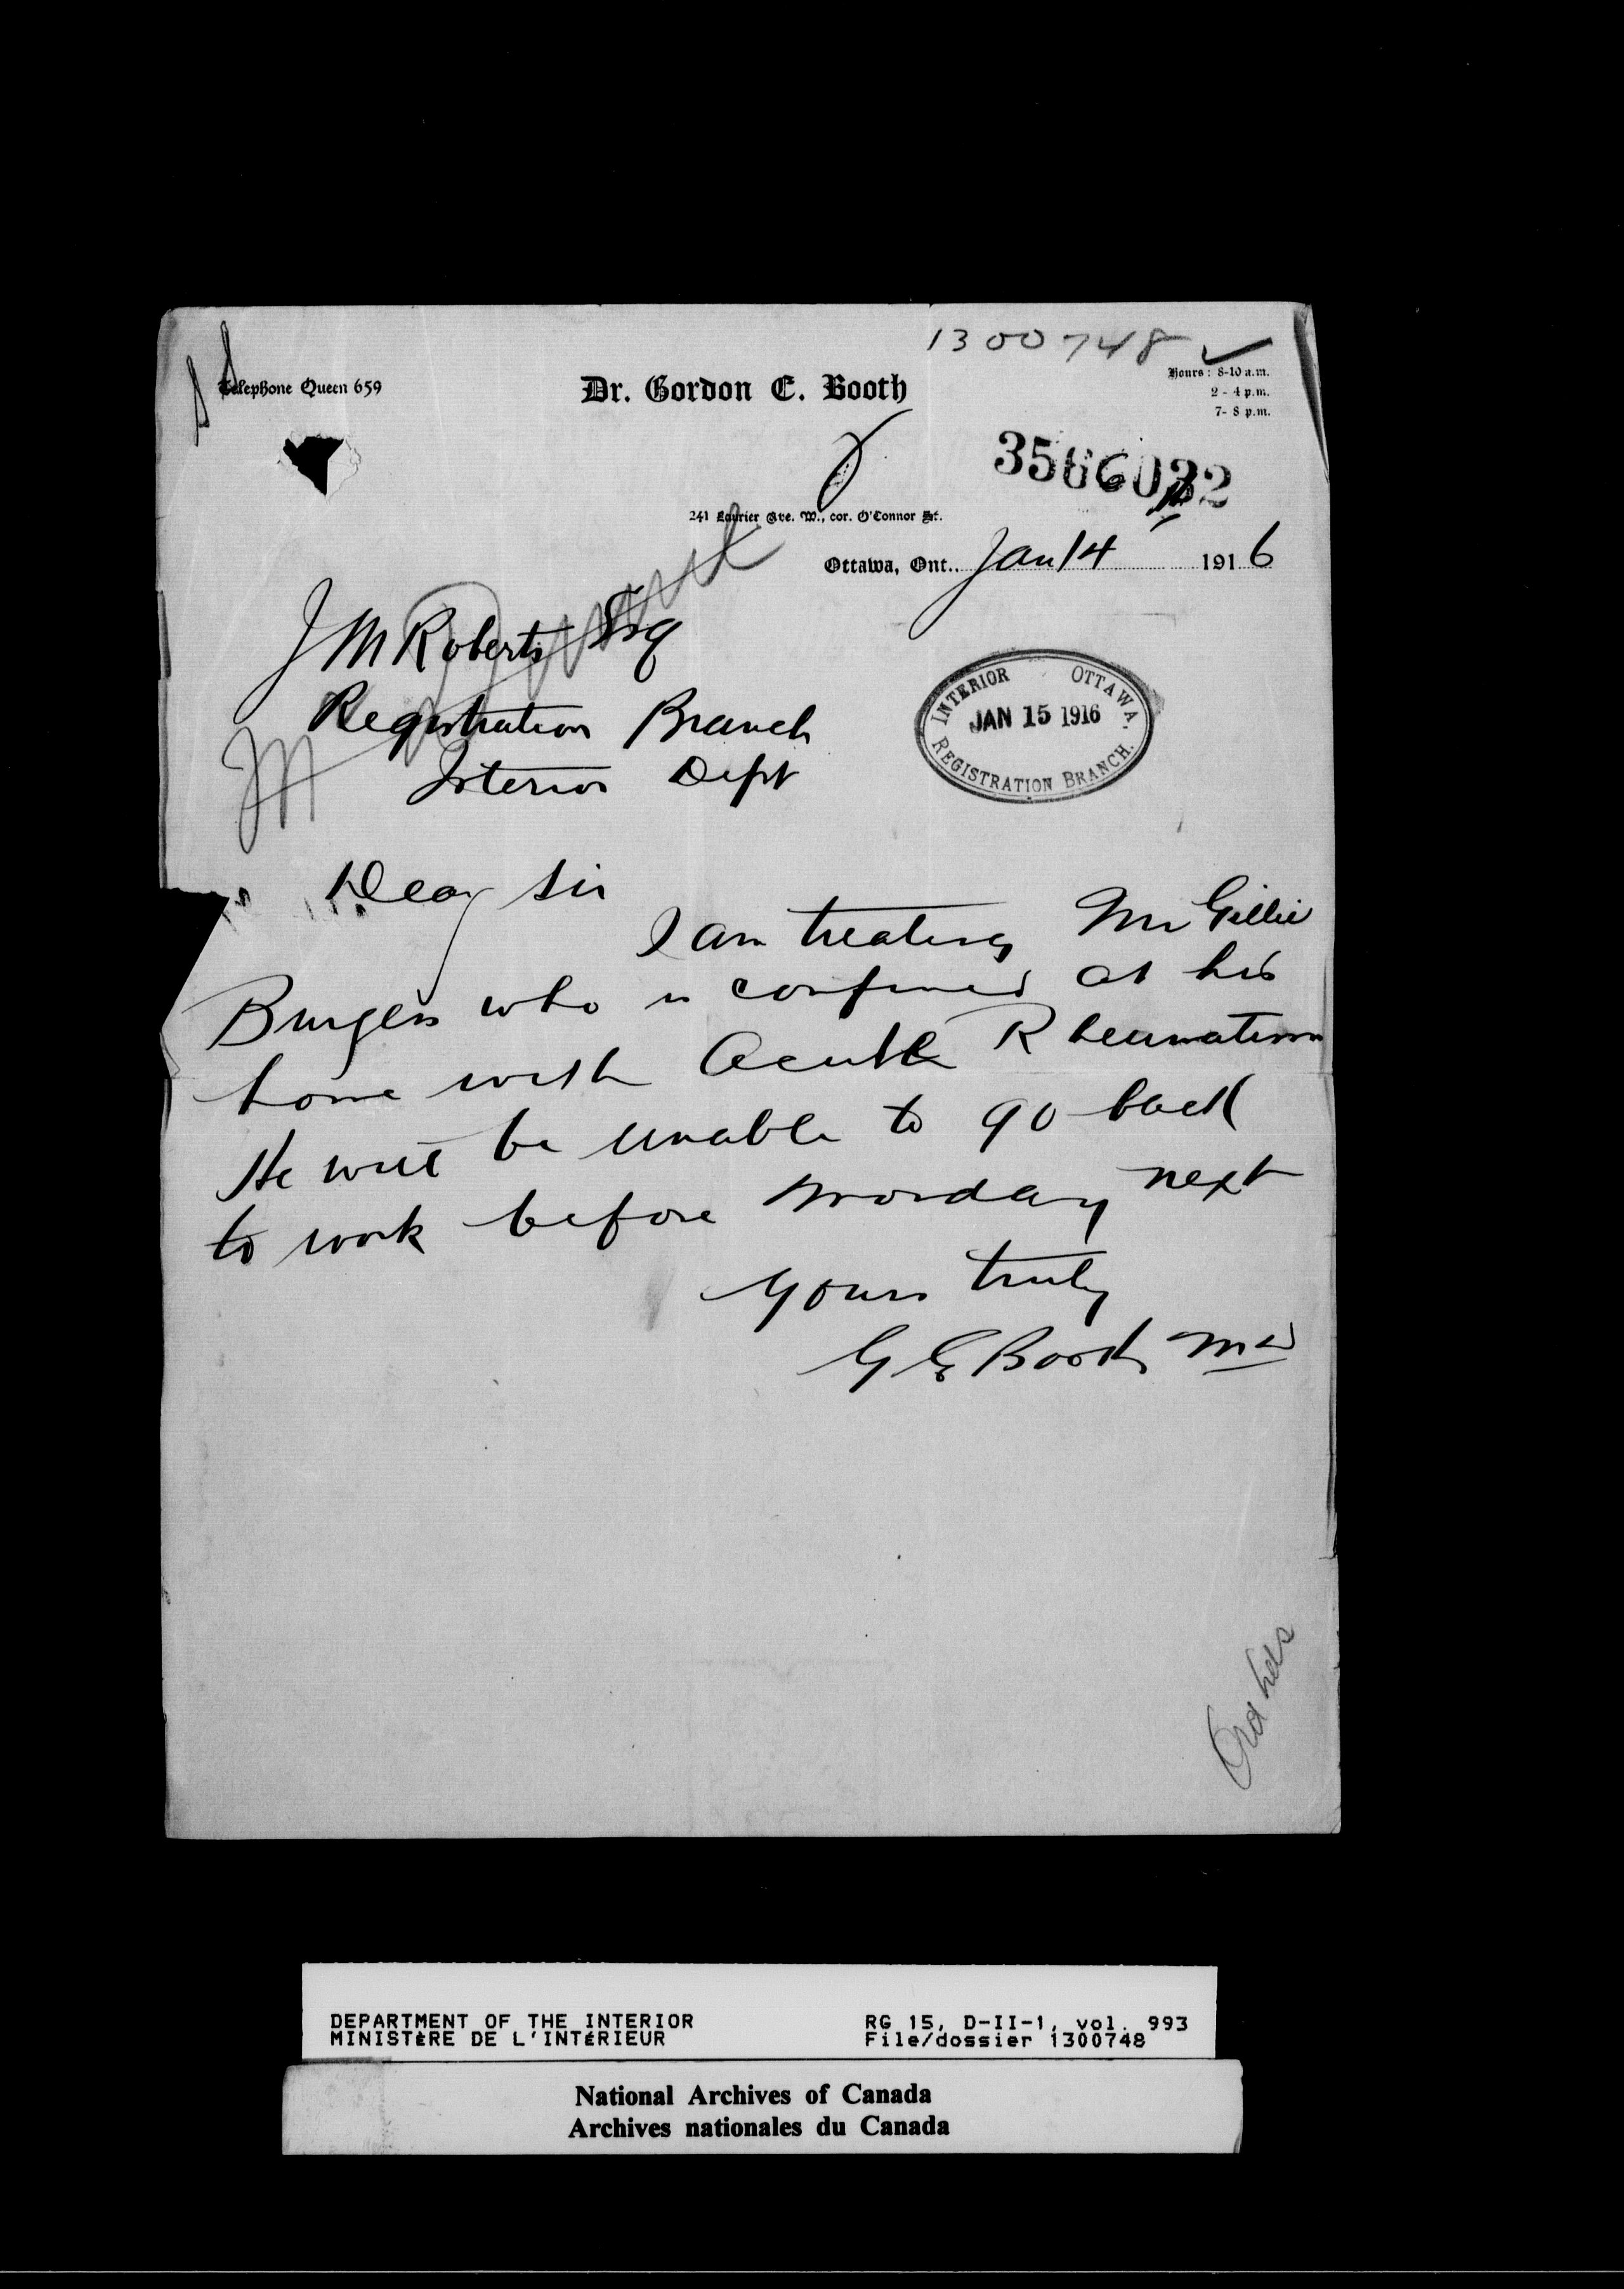 1300748
Telephone Queen 659
Dr. Gordon E. Booth
Hours: 8-10 a.m.
2 - 4 p.m.
7- 8 p.m.
3566032
241 Laurier Ave. W., cor. O'Connor St.
Ottawa, Ont.. Jan 14 1916
J M Roberts Esq
Registration Branch
Interior Dept
INTERIOR OTTAWA.
JAN 15 1916
REGISTRATION BRANCH.
Dear Sir
I am treating Mr Gillie
Burgess who is confined at his
home with Acute Rheumatism
He will be unable to go back
to work before Monday next
Yours truly
G E Booth MD
DEPARTMENT OF THE INTERIOR
MINISTÈRE DE L'INTÉRIEUR
RG 15, D-II-1, vol. 993
File/dossier 1300748
National Archives of Canada
Archives nationales du Canada